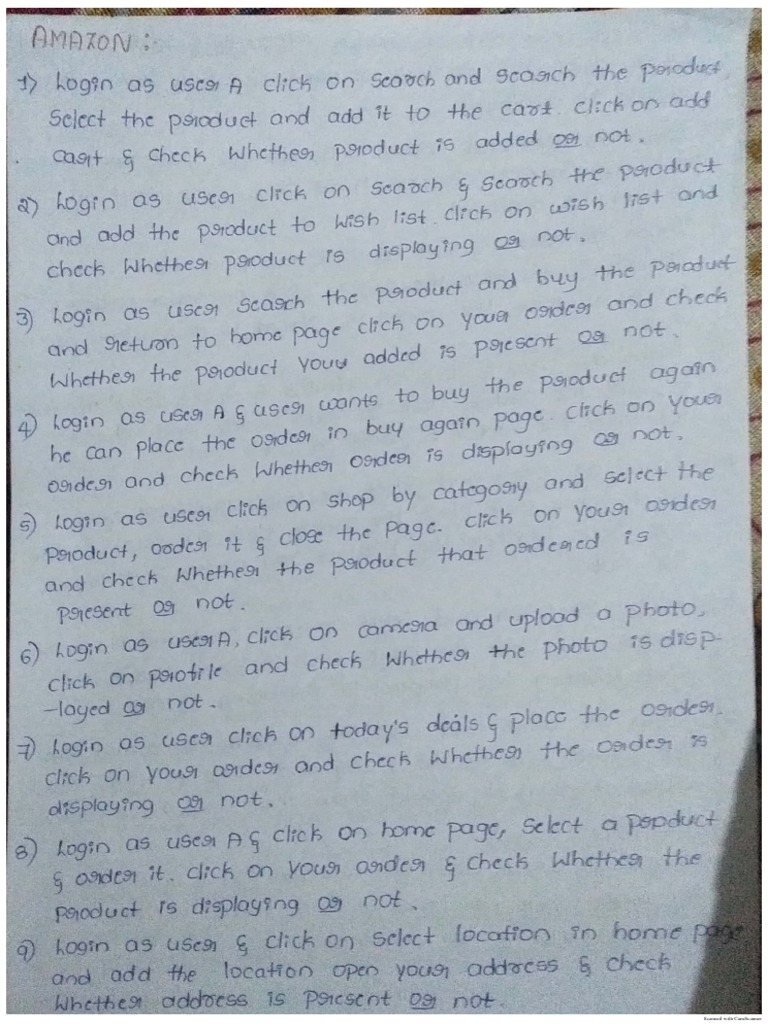 AMAZON :
1) Login as user A click on search and search the product,
Select the product and add it to the cart. click on add
cart & check whether product is added or not.
2) Login as user click on search & search the product
and add the product to wish list. click on wish list and
check whether product is displaying or not.
3) Login as user search the product and buy the product
and return to home page click on your order and check
whether the product your added is present or not.
4) Login as user A & user wants to buy the product again
he can place the order in buy again page. click on your
order and check whether order is displaying or not.
5) Login as user click on shop by category and select the
product, order it & close the page. click on your order
and check whether the product that ordered is
present or not.
6) Login as user A, click on camera and upload a photo,
click on profile and check whether the photo is disp-
-layed or not.
7) Login as user click on today's deals & place the order.
click on your order and check whether the order is
displaying or not.
8) Login as user A & click on home page, select a product
& order it. click on your order & check whether the
product is displaying or not.
9) Login as user & click on select location in home page
and add the location open your address & check
whether address is present or not.
Scanned with CamScanner